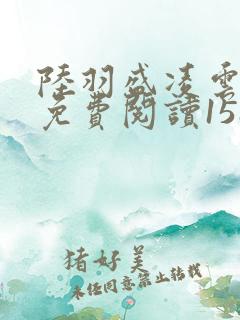 陸羽盛凌雲
免費閱讀15
猪好美
未经同意禁止转载